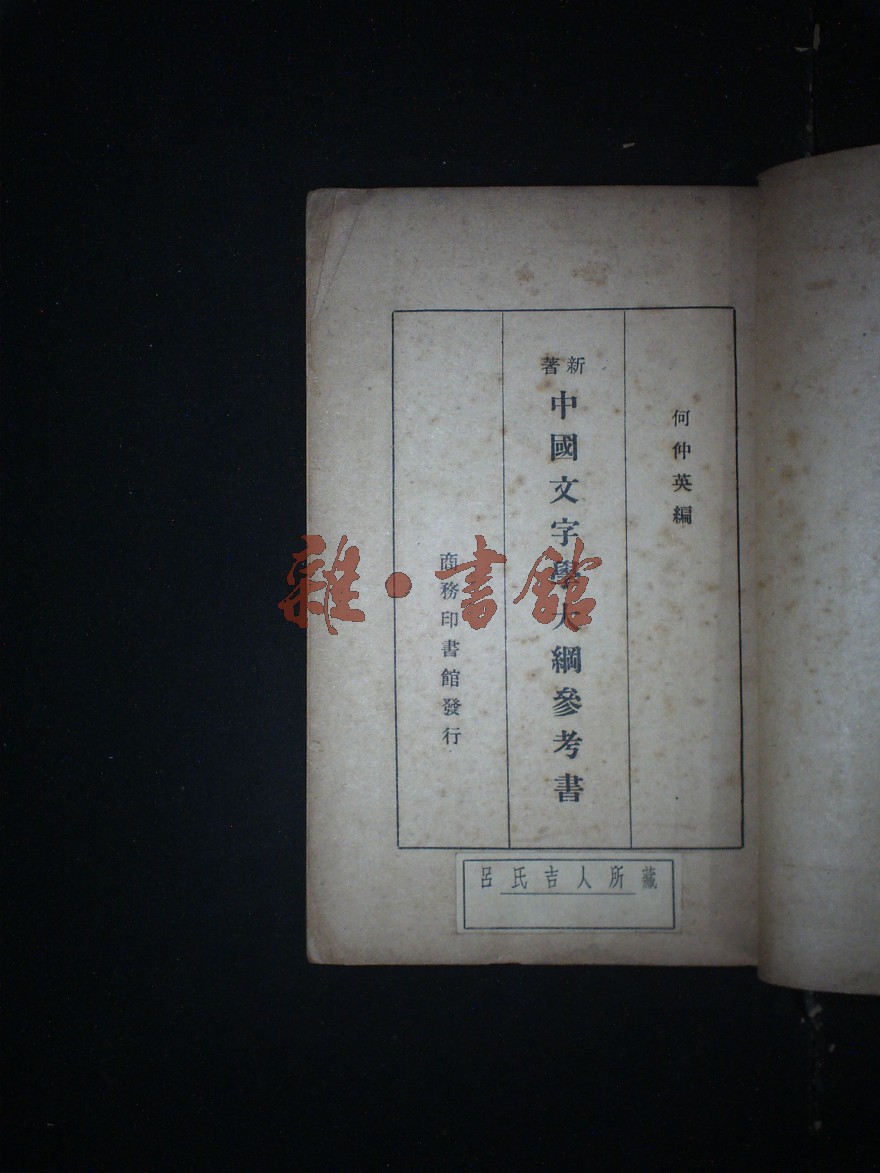 何仲英編
新著
中國文字學大綱參考書
商務印書館發行
呂氏吉人所藏
雜·書館